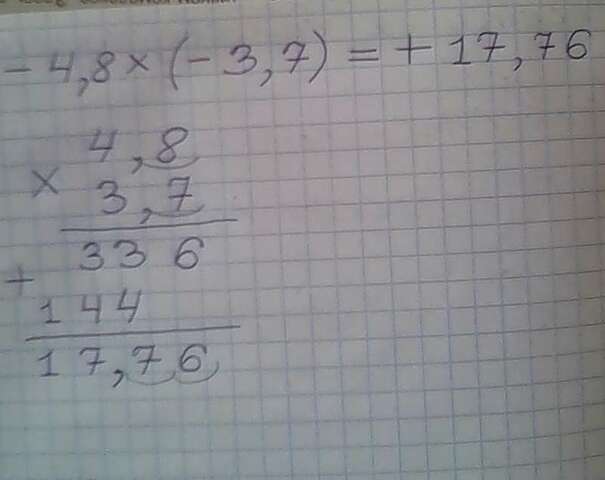 - 4,8 × (- 3,7) = + 17,76
4,8
×
3,7
336
+
144
17,76